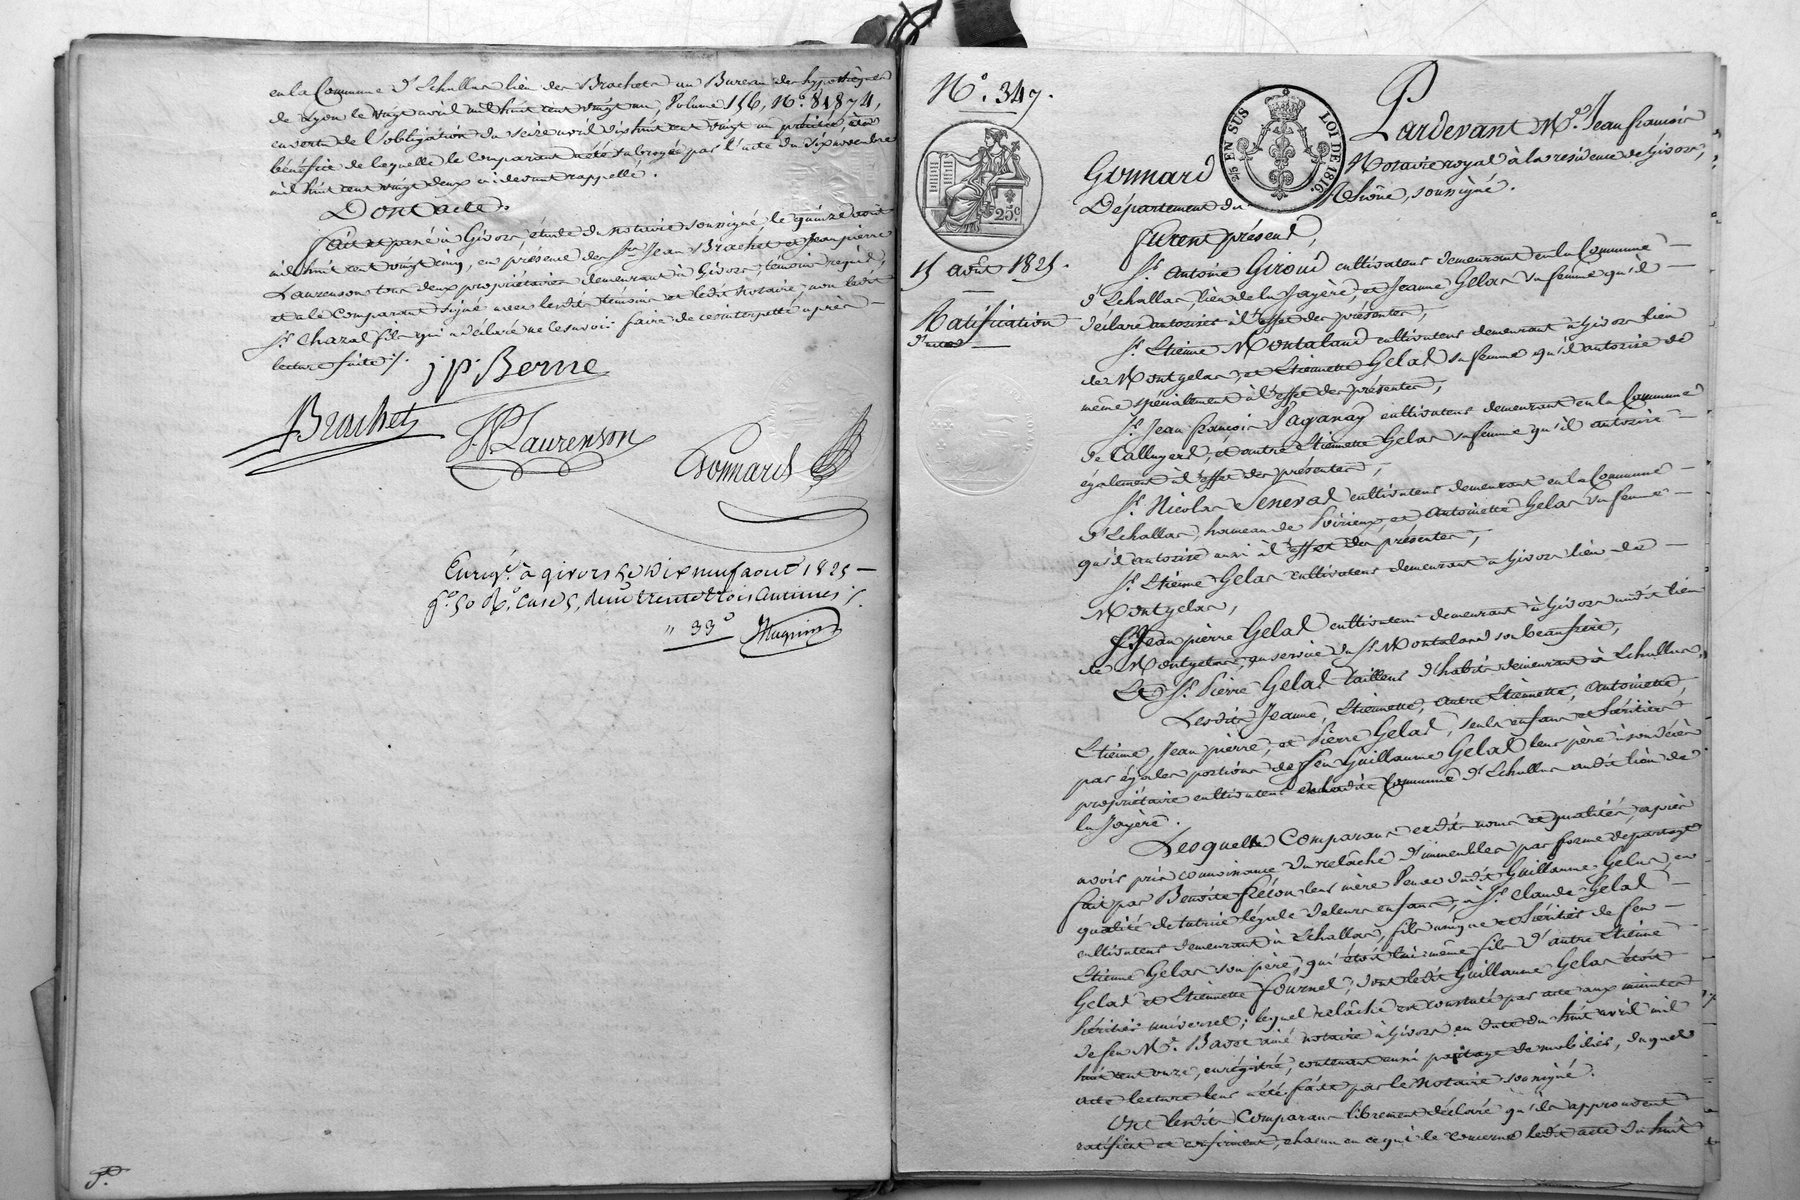 en la Commune d'Echallas lieu des Brachets au Bureau des hypothèques
de Lyon le vingt avril mil huit cent vingt un, Volume 156, N°. 81874,
en vertu de l'obligation du seize avril dix huit cent vingt un précitée, et au
bénéfice de laquelle le comparant a été subrogé par l'acte du six novembre
mil huit cent vingt deux ci devant rappellé.
Dont acte.
fait et passé à Givors, étude du notaire soussigné, le quinze août
mil huit cent vingt cinq, en présence des Srs. Jean Brachet et Jean pierre
Laurenson tous deux propriétaires demeurant à Givors, témoins requis,
et a le comparant signé avec lesdits témoins et ledit Notaire, non ledit
Sr. Chazal fils qui a déclaré ne le savoir faire de ce interpellé après
lecture faite ./.
j. p. Berne
Brachet
J. P. Laurenson
Gonnard
Enregé. à Givors le dix neuf aout 1825
fo. 50 Ro. Case 5, Reçu trente trois centimes ./.
" 33c
Magnin
N°. 347.
25 EN SUS LOI DE 1816.
25c
15 août 1825.
Ratification
d'acte
Pardevant Me. Jean françois
Gonnard Notaire royal à la residence de Givors,
Département du Rhône, soussigné.
furent présens,
Sr. Antoine Giroud cultivateur demeurant en la Commune
d'Echallas lieu de la Jayère, et Jeanne Gelas sa femme qu'il
déclare autoriser à l'effet des présentes,
Sr. Etienne Montaland cultivateur demeurant à Givors lieu
de Montgelas, et Etiennette Gelas sa femme qu'il autorise de
même spécialement à l'effet des présentes,
Sr. Jean françois Paganay cultivateur demeurant en la Commune
de Calluyere, et autre Etiennette Gelas sa femme qu'il autorise
également à l'effet des présentes,
Sr. Nicolas Seneval cultivateur demeurant en la Commune
d'Echallas, hameau de Poirieux, et Antoinette Gelas sa femme
qu'il autorise aussi à l'effet des présentes,
Sr. Etienne Gelas cultivateur demeurant à Givors lieu de
Montgelas,
Sr. Jean pierre Gelas cultivateur demeurant à Givors audit lieu
de Montgelas, au service du Sr. Montaland son beaufrère,
Et Sr. Pierre Gelas tailleur d'habits demeurant à Echallas,
Lesdits Jeanne, Etiennette, autre Etiennette, Antoinette,
Etienne, Jean pierre, et Pierre Gelas, seuls enfans et héritiers
par égales portions de feu Guillaume Gelas leur père à son décès
propriétaire cultivateur en ladite Commune d'Echallas audit lieu de
la Jayère.
Lesquels Comparans esdits noms et qualités, après
avoir pris connoissance du relâché d'immeubles par forme de partage
fait par Benoite freton leur mère Veuve dudit Guillaume Gelas, en
qualité de tutrice légale de leurs enfans, à Sr. Claude Gelas
cultivateur demeurant à Echallas, fils unique et héritier de feu
Etienne Gelas son père, qui étoit lui-même fils d'autre Etienne
Gelas et Etiennette fournel, dont ledit Guillaume Gelas étoit
héritier universel; lequel relâché est constaté par acte aux minutes
de feu Me. Bavet ainé notaire à Givors en date du huit avril mil
huit cent onze, enregistré, contenant aussi partage de mobilier, duquel
acte lecture leur a été faite par le Notaire soussigné.
Ont lesdits Comparans librement déclaré qu'ils approuvent
ratifient et confirment, chacun en ce qui le concerne ledit acte du huit